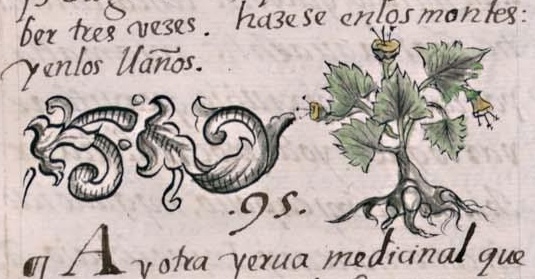 ber tres vezes. hazese enlos montes:
yenlos llaños.
.95.
¶ Ay otra yerua medicinal que